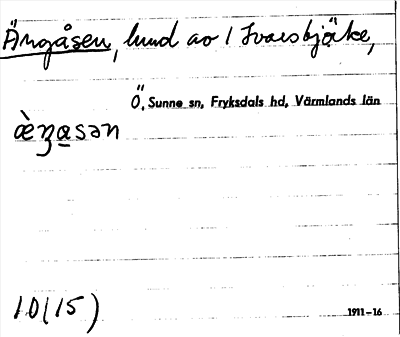 Ängåsen, lund av 1 Ivarsbjörke,
Ö. Sunne sn, Fryksdals hd, Värmlands län
æ̀ŋa̠sən
10(15)
1911-16